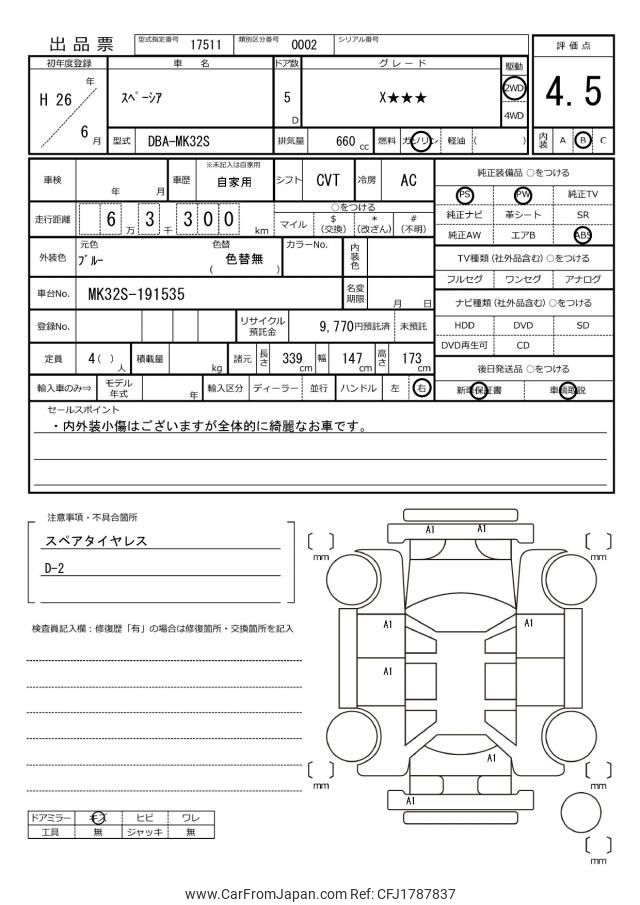 出品票 型式指定番号 17511 類別区分番号 0002 シリアル番号
評価点
初年度登録 車 名 ドア数 グレード 駆動
H 26 年 ｽﾍﾟｰｼｱ 5 D X★★★ 2WD 4.5
4WD
6 月 型式 DBA-MK32S 排気量 660 cc 燃料 ガソリン 軽油 ( ) 内装 A B C
車検 年 月 車歴 ※未記入は自家用 自家用 シフト CVT 冷房 AC
純正装備品 ○をつける
PS PW 純正TV
走行距離 6 万 3 千 3 0 0 km ○をつける
マイル $ (交換) * (改ざん) # (不明)
純正ナビ 革シート SR
純正AW エアB ABS
外装色 元色 ﾌﾞﾙｰ 色替 ( 色替無 ) カラーNo. 内装色
TV種類 (社外品含む) ○をつける
フルセグ ワンセグ アナログ
車台No. MK32S-191535 名変期限 月 日
ナビ種類 (社外品含む) ○をつける
登録No. リサイクル預託金 9,770円預託済 未預託
HDD DVD SD
DVD再生可 CD
定員 4 ( ) 人 積載量 kg 諸元 長さ 339 cm 幅 147 cm 高さ 173 cm
後日発送品 ○をつける
輸入車のみ⇒ モデル年式 年 輸入区分 ディーラー 並行 ハンドル 左 右
新車保証書 車輌取説
セールスポイント
・内外装小傷はございますが全体的に綺麗なお車です。
注意事項・不具合箇所
スペアタイヤレス
D-2
検査員記入欄：修復歴「有」の場合は修復箇所・交換箇所を記入
A1 A1
mm mm
A1 A1
A1
A1
mm mm
A1
mm
ドアミラー キズ ヒビ ワレ
工具 無 ジャッキ 無
www.CarFromJapan.com Ref: CFJ1787837